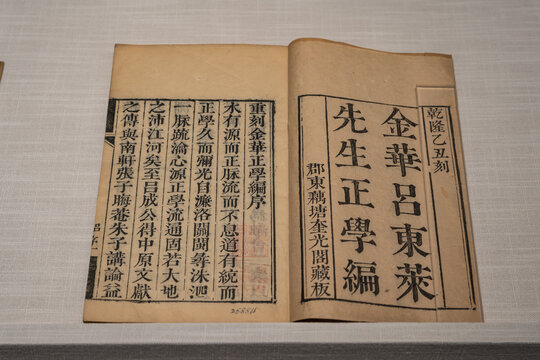 乾隆乙丑刻
金華呂東萊
先生正學編
郡東藕塘奎光閣藏板
重刻金華正學編序
水有源而正脉流而不息道有統而
正學久而彌光自濂洛關閩尋洙泗
一脉疏瀹心源正學流通固若大地
之沛江河矣至呂成公得中原文獻
之傳與南軒張子晦菴朱子講論益